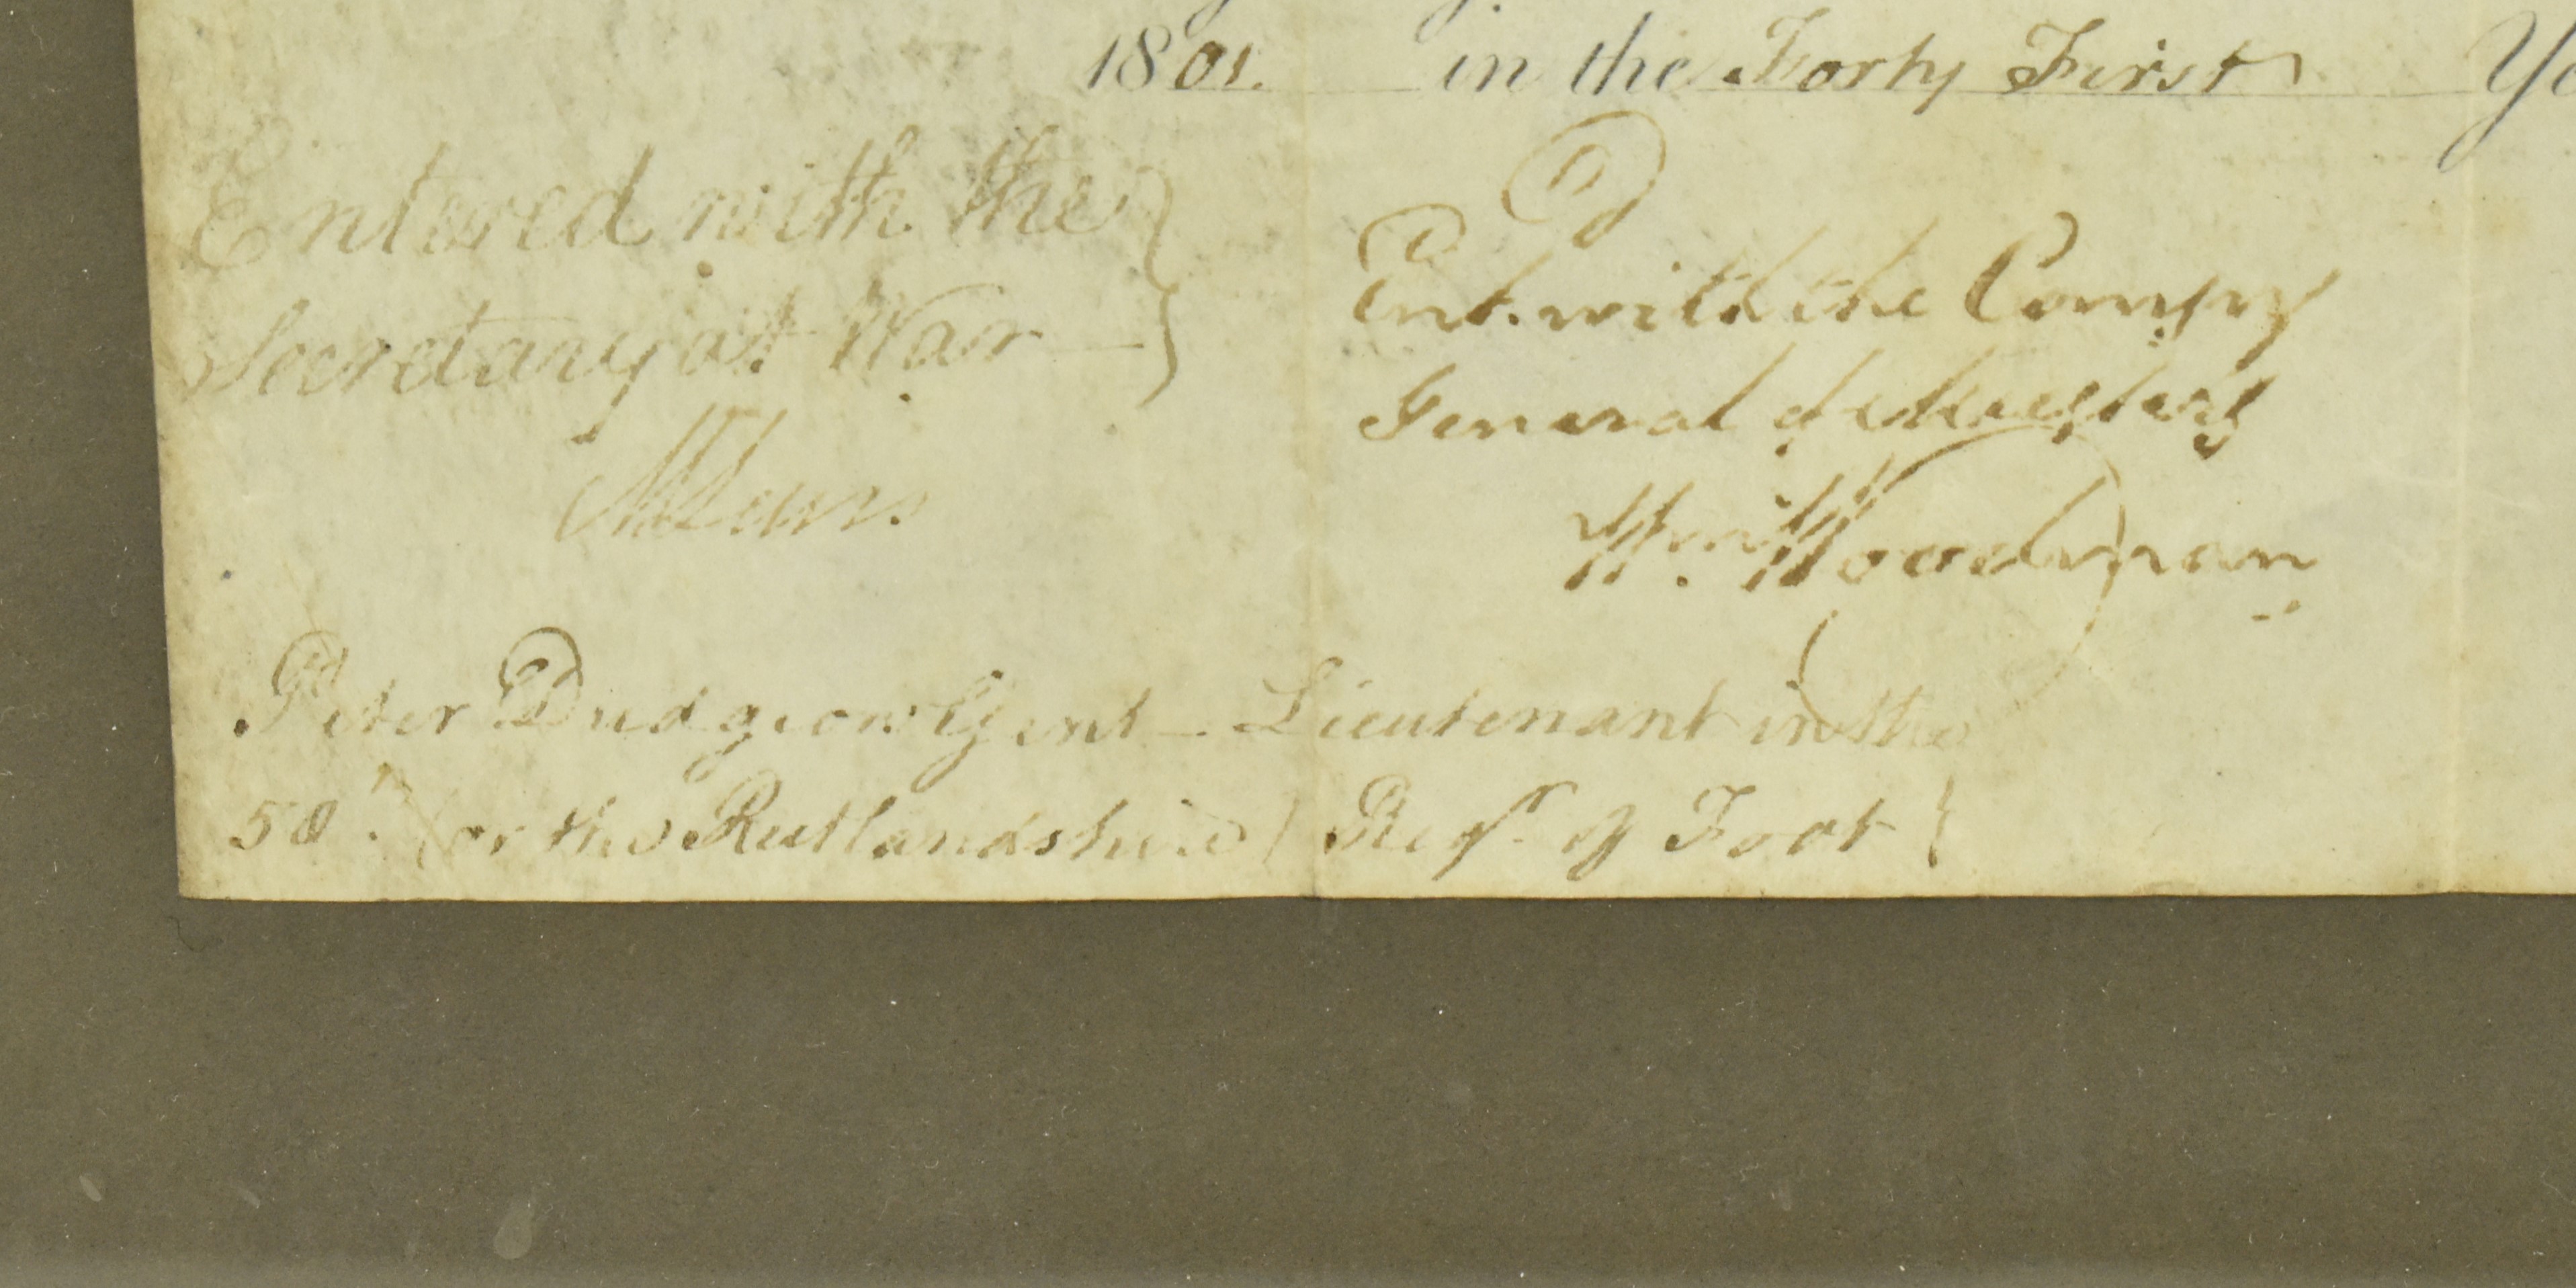 1801. in the Forty First Ye
Entered with the
Secretary at War
M Lewis
Ent. with the Comy
General of Musters
Wm. Woodman
Peter Dudgeon Gent - Lieutenant in the
58th. (or the Rutlandshire) Regt. of Foot